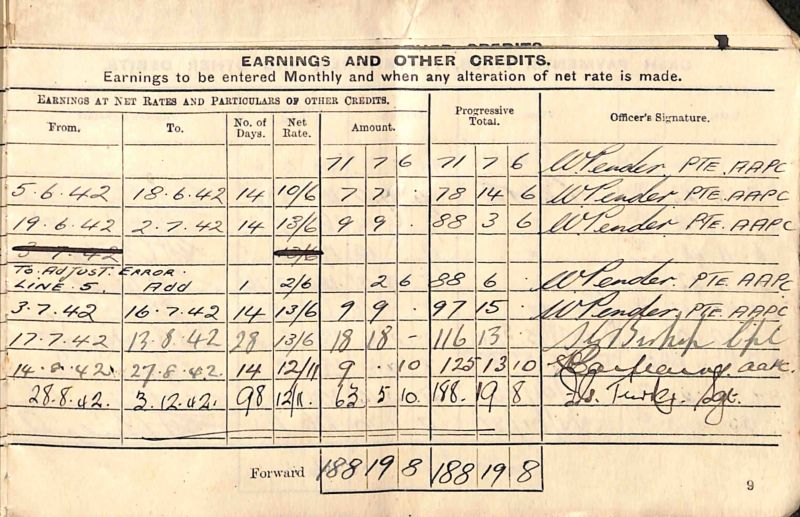 EARNINGS AND OTHER CREDITS.
Earnings to be entered Monthly and when any alteration of net rate is made.
EARNINGS AT NET RATES AND PARTICULARS OF OTHER CREDITS. Progressive Total. Officer's Signature.
From. To. No. of Days. Net Rate. Amount.
71 7 6 71 7 6 W Pender PTE. AAPC
5.6.42 18.6.42 14 10/6 7 7 . 78 14 6 W Pender PTE. AAPC
19.6.42 2.7.42 14 13/6 9 9 . 88 3 6 W Pender PTE. AAPC
3.7.42 13/6
TO ADJUST ERROR.
LINE 5. Add 1 2/6 2 6 88 6 . W Pender. PTE. AAPC
3.7.42 16.7.42 14 13/6 9 9 . 97 15 . W Pender. PTE. AAPC
17.7.42 13.8.42 28 13/6 18 18 – 116 13 Cpl
14.8.42 27.8.42. 14 12/11 9 . 10 125 13 10 AAPC.
28.8.42. 3.12.42. 98 12/11. 63 5 10. 188. 19 8 Sgt.
Forward 188 19 8 188 19 8
9